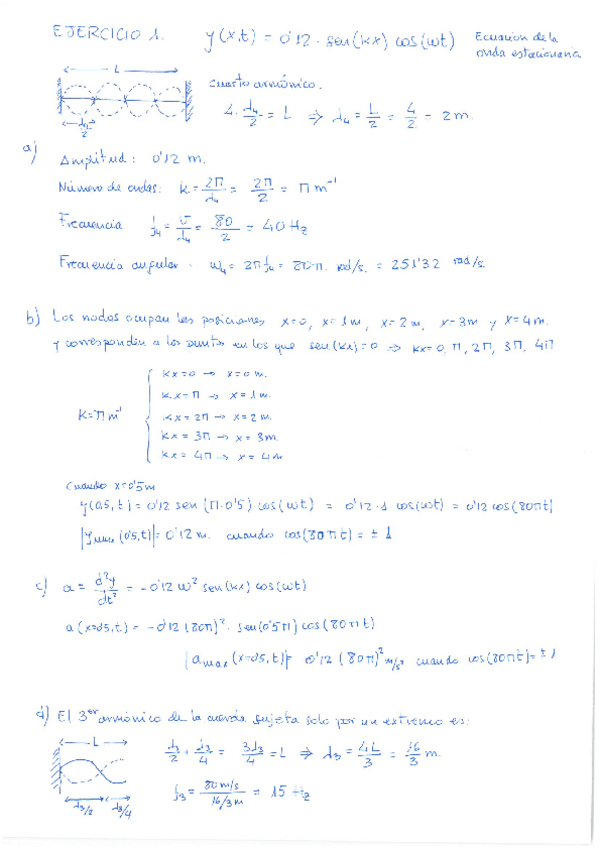 EJERCICIO 1. y(x,t) = 0'12 · sen(kx) cos(ωt) Ecuación de la onda estacionaria
L
cuarto armónico.
λ4/2
4 · λ4/2 = L ⇒ λ4 = L/2 = 4/2 = 2 m.
a)
Amplitud: 0'12 m.
Número de ondas: k = 2π/λ4 = 2π/2 = π m⁻¹
Frecuencia f4 = v/λ4 = 80/2 = 40 Hz
Frecuencia angular - ω4 = 2π f4 = 80π rad/s. = 251'32 rad/s.
b) Los nodos ocupan las posiciones x=0, x=1m, x=2m, x=3m y x=4m.
y corresponden a los puntos en los que sen(kx)=0 ⇒ kx=0, π, 2π, 3π, 4π
kx=0 → x=0 m.
kx=π → x=1m.
K=π m⁻¹ kx=2π → x=2m.
kx=3π → x=3m.
kx=4π → x=4m
Cuando x=0'5m
y(0'5,t) = 0'12 sen(π·0'5) cos(ωt) = 0'12·1 cos(ωt) = 0'12 cos(80πt)
|ymax(0'5,t)| = 0'12 m. cuando cos(80πt) = ±1
c) a = d²y/dt² = -0'12 ω² sen(kx) cos(ωt)
a(x=0'5,t) = -0'12 (80π)² · sen(0'5π) cos(80πt)
|amax(x=0'5,t)| = 0'12 (80π)² m/s² cuando cos(80πt) = ±1
d) El 3er armónico de la cuerda sujeta solo por un extremo es:
L
λ3/2 + λ3/4 = 3λ3/4 = L ⇒ λ3 = 4L/3 = 16/3 m.
f3 = 80m/s / 16/3m = 15 Hz
λ3/2 λ3/4